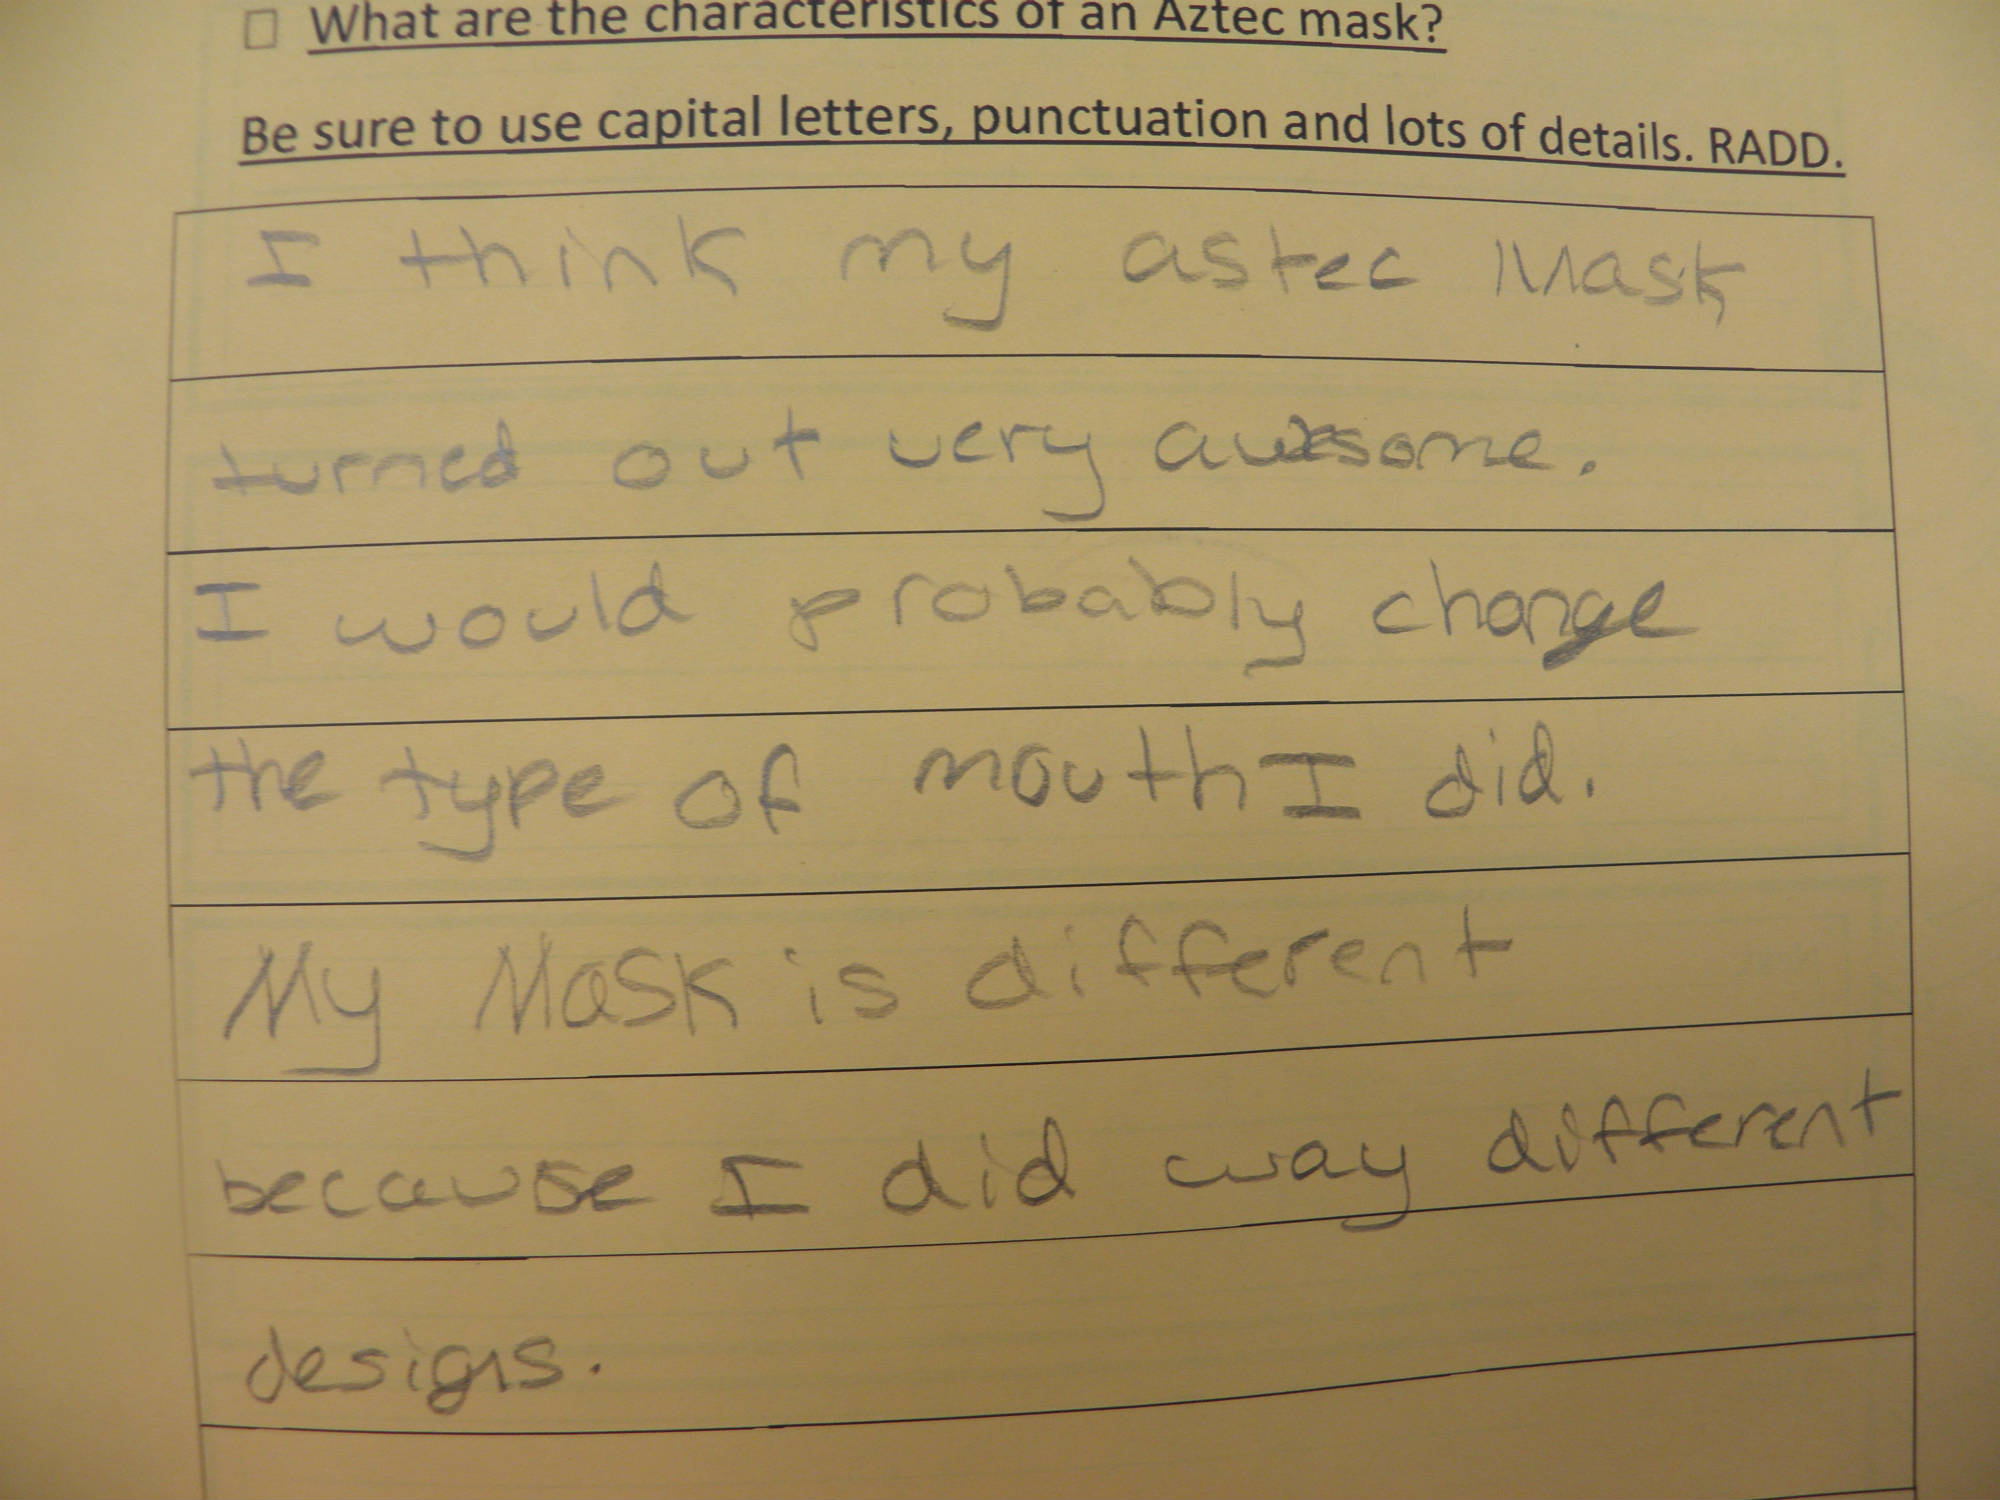 ☐ What are the characteristics of an Aztec mask?
Be sure to use capital letters, punctuation and lots of details. RADD.
I think my astec Mask
turned out very awesome.
I would probably change
the type of mouth I did.
My Mask is different
because I did way different
designs.